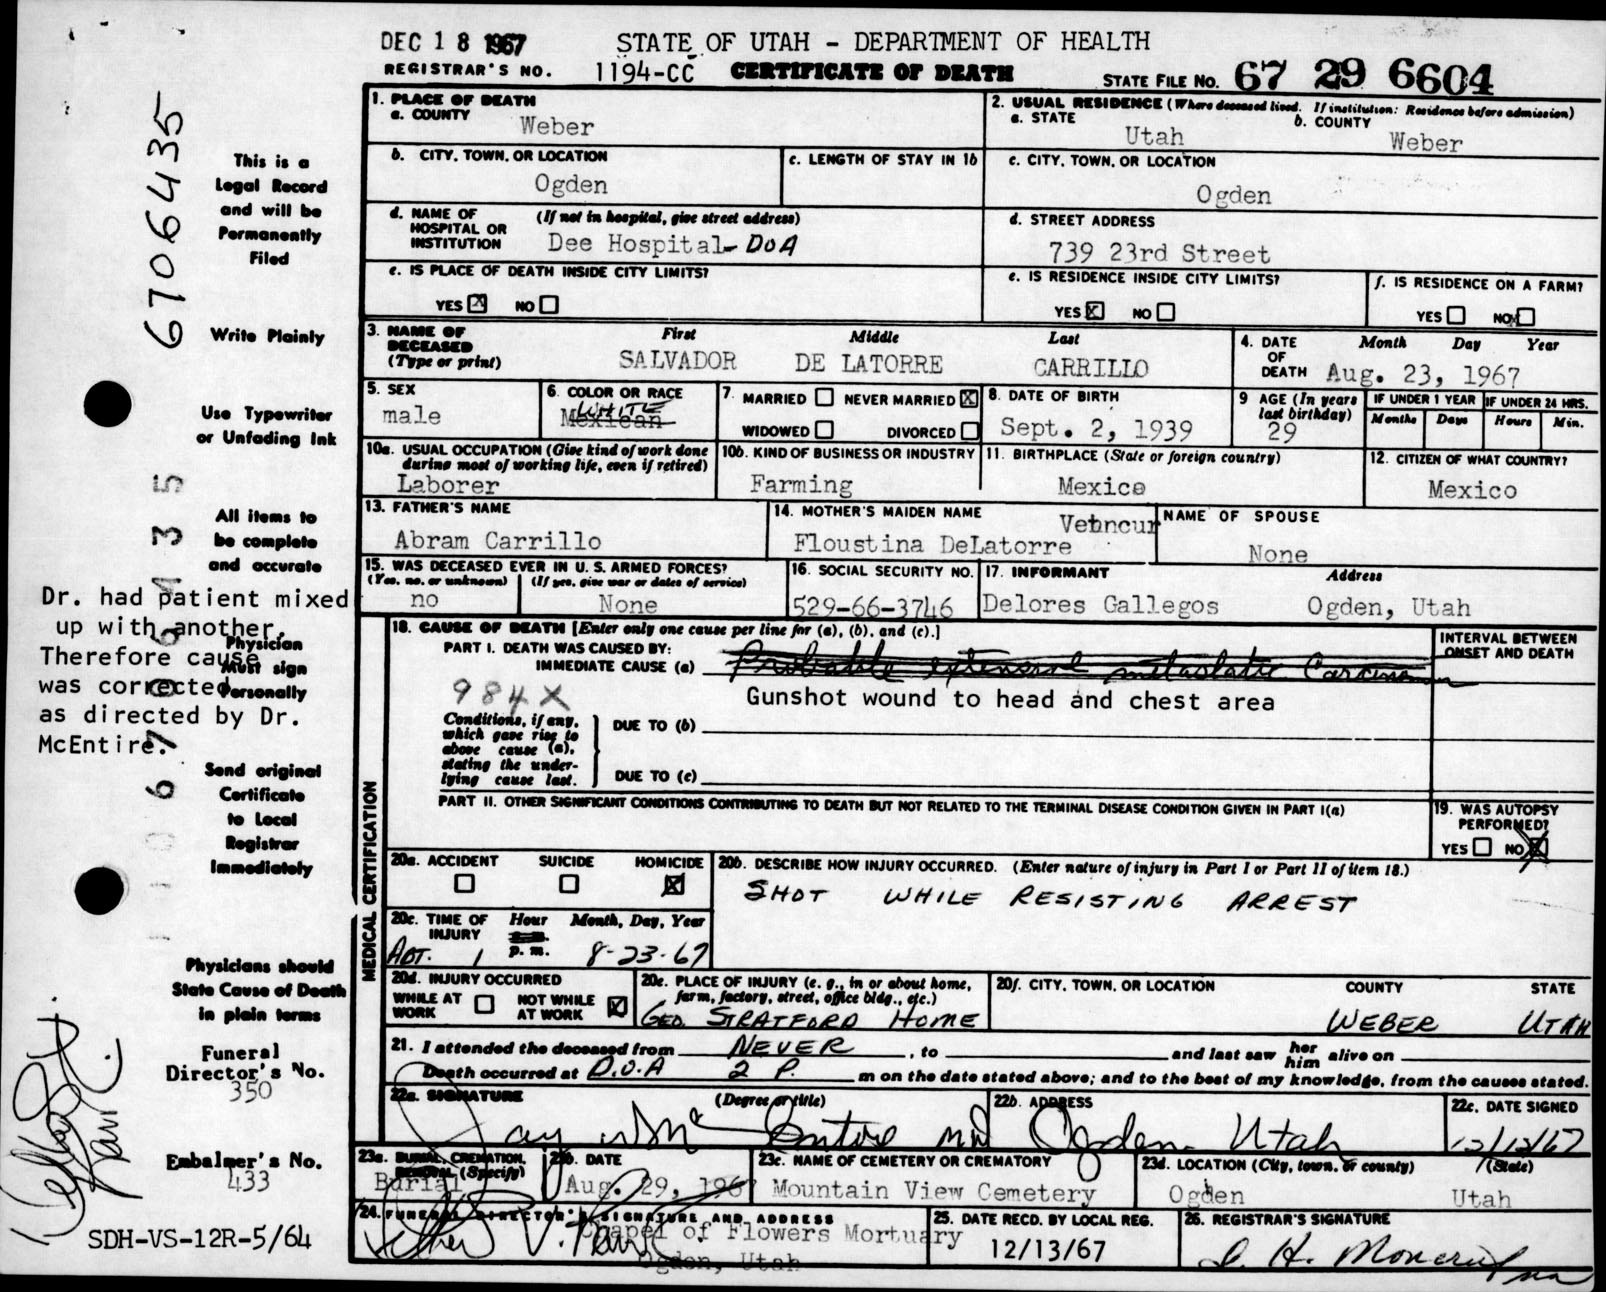 DEC 18 1967 STATE OF UTAH - DEPARTMENT OF HEALTH
REGISTRAR'S NO. 1194-CC CERTIFICATE OF DEATH STATE FILE NO. 67 29 6604
1. PLACE OF DEATH
a. COUNTY Weber
2. USUAL RESIDENCE (Where deceased lived. If institution: Residence before admission)
a. STATE Utah b. COUNTY Weber
b. CITY, TOWN, OR LOCATION Ogden
c. LENGTH OF STAY IN 1b
c. CITY, TOWN, OR LOCATION Ogden
d. NAME OF HOSPITAL OR INSTITUTION (If not in hospital, give street address)
Dee Hospital- DOA
d. STREET ADDRESS
739 23rd Street
e. IS PLACE OF DEATH INSIDE CITY LIMITS?
YES X NO
e. IS RESIDENCE INSIDE CITY LIMITS?
YES X NO
f. IS RESIDENCE ON A FARM?
YES NO X
3. NAME OF DECEASED (Type or print) First Middle Last
SALVADOR DE LATORRE CARRILLO
4. DATE OF DEATH Month Day Year
Aug. 23, 1967
5. SEX
male
6. COLOR OR RACE
WHITE
Mexican
7. MARRIED NEVER MARRIED X
WIDOWED DIVORCED
8. DATE OF BIRTH
Sept. 2, 1939
9 AGE (In years last birthday)
29
IF UNDER 1 YEAR IF UNDER 24 HRS.
Months Days Hours Min.
10a. USUAL OCCUPATION (Give kind of work done during most of working life, even if retired)
Laborer
10b. KIND OF BUSINESS OR INDUSTRY
Farming
11. BIRTHPLACE (State or foreign country)
Mexico
12. CITIZEN OF WHAT COUNTRY?
Mexico
13. FATHER'S NAME
Abram Carrillo
14. MOTHER'S MAIDEN NAME
Floustina DeLatorre
NAME OF SPOUSE
None
15. WAS DECEASED EVER IN U. S. ARMED FORCES?
(Yes, no, or unknown) (If yes, give war or dates of service)
no None
16. SOCIAL SECURITY NO.
529-66-3746
17. INFORMANT Address
Delores Gallegos Ogden, Utah
MEDICAL CERTIFICATION
18. CAUSE OF DEATH [Enter only one cause per line for (a), (b), and (c).]
INTERVAL BETWEEN ONSET AND DEATH
PART I. DEATH WAS CAUSED BY:
IMMEDIATE CAUSE (a) Probable extensive metastatic Carcinoma
984X Gunshot wound to head and chest area
Conditions, if any, which gave rise to above cause (a), stating the underlying cause last.
DUE TO (b)
DUE TO (c)
PART II. OTHER SIGNIFICANT CONDITIONS CONTRIBUTING TO DEATH BUT NOT RELATED TO THE TERMINAL DISEASE CONDITION GIVEN IN PART I(a)
19. WAS AUTOPSY PERFORMED?
YES NO X
20a. ACCIDENT SUICIDE HOMICIDE X
20b. DESCRIBE HOW INJURY OCCURRED. (Enter nature of injury in Part I or Part II of item 18.)
SHOT WHILE RESISTING ARREST
20c. TIME OF INJURY Hour Month, Day, Year
ABT. 1 p. m. 8-23-67
20d. INJURY OCCURRED
WHILE AT WORK NOT WHILE AT WORK X
20e. PLACE OF INJURY (e. g., in or about home, farm, factory, street, office bldg., etc.)
GEO. STRATFORD HOME
20f. CITY, TOWN, OR LOCATION COUNTY STATE
WEBER UTAH
21. I attended the deceased from NEVER, to and last saw her him alive on
Death occurred at D.O.A 2 P. m on the date stated above; and to the best of my knowledge, from the causes stated.
22a. SIGNATURE (Degree or title)
Jay W McEntire MD
22b. ADDRESS
Ogden Utah
22c. DATE SIGNED
12/12/67
23a. BURIAL, CREMATION, REMOVAL (Specify)
Burial
23b. DATE
Aug. 29, 1967
23c. NAME OF CEMETERY OR CREMATORY
Mountain View Cemetery
23d. LOCATION (City, town, or county) (State)
Ogden Utah
24. FUNERAL DIRECTOR'S SIGNATURE AND ADDRESS
Chapel of Flowers Mortuary
Ogden, Utah
25. DATE RECD. BY LOCAL REG.
12/13/67
26. REGISTRAR'S SIGNATURE
6706435
This is a
Legal Record
and will be
Permanently
Filed
Write Plainly
Use Typewriter
or Unfading Ink
All items to
be complete
and accurate
Dr. had patient mixed
up with another.
Therefore cause
was corrected
as directed by Dr.
McEntire.
Physician
Must sign
Personally
Send original
Certificate
to Local
Registrar
Immediately
Physicians should
State Cause of Death
in plain terms
Funeral
Director's No.
350
Embalmer's No.
433
SDH-VS-12R-5/64